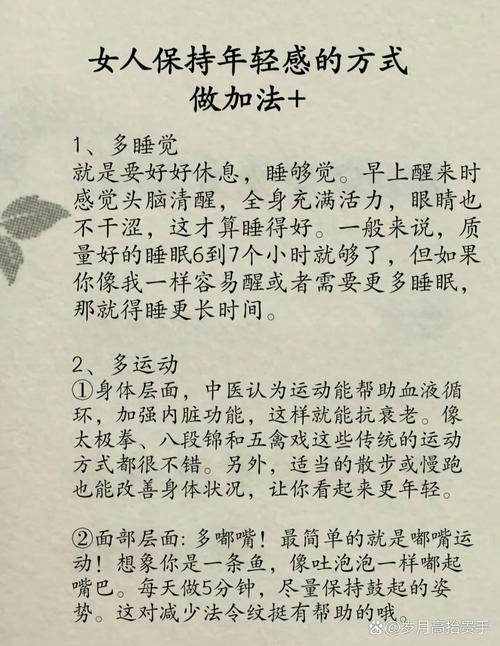 女人保持年轻感的方式
做加法+
1、多睡觉
就是要好好休息，睡够觉。早上醒来时
感觉头脑清醒，全身充满活力，眼睛也
不干涩，这才算睡得好。一般来说，质
量好的睡眠6到7个小时就够了，但如果
你像我一样容易醒或者需要更多睡眠，
那就得睡更长时间。
2、多运动
①身体层面，中医认为运动能帮助血液循
环，加强内脏功能，这样就能抗衰老。像
太极拳、八段锦和五禽戏这些传统的运动
方式都很不错。另外，适当的散步或慢跑
也能改善身体状况，让你看起来更年轻。
②面部层面：多嘟嘴！最简单的就是嘟嘴运
动！想象你是一条鱼，像吐泡泡一样嘟起
嘴巴。每天做5分钟，尽量保持鼓起的姿
势。这对减少法令纹挺有帮助的哦。
@岁月高抬贵手